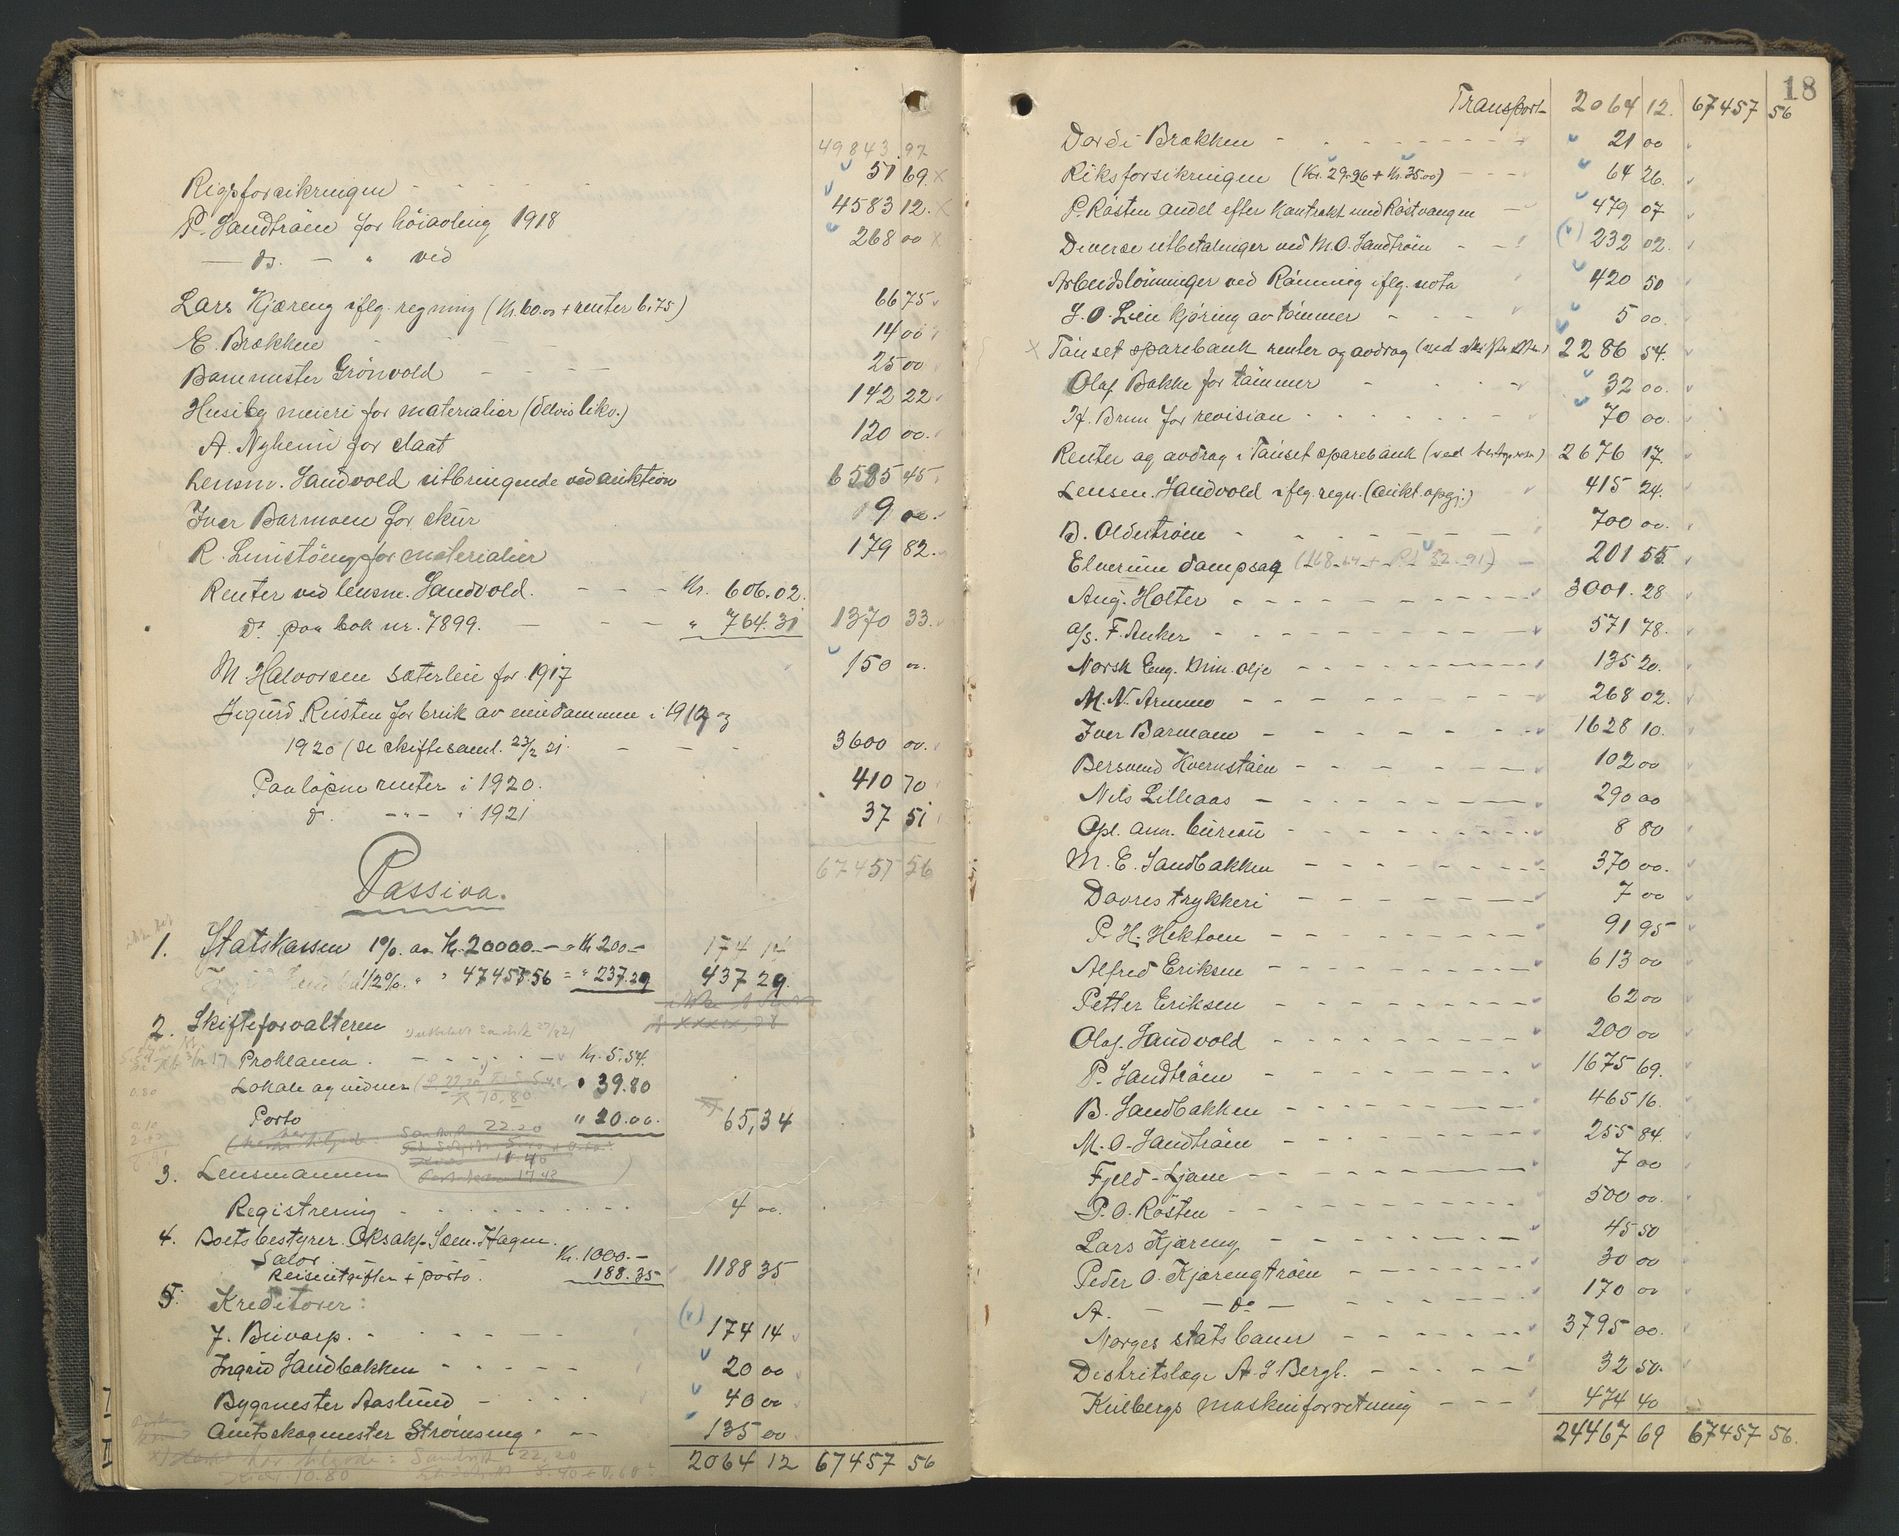 49843.97
Rigsforsikringen - - - - 51 69. x
P. Sandtrøen for höiavling 1918 4583 12. x
— Do. — " ved 268 00 x
Lars Kjæreng iflg. regning (Kr. 60.00 + renter 6.75) 66 75
E. Brækken - - - - 14 00
Banemester Grönvold - - - - 25 00
Husiby meieri for materialier (delvis likv.) 142 22
A. Nyheim for slaat 120 00.
Lensm. Sandvold utbringende ved auktion 6585 45
Iver Barmoen for skur 19 00.
R. Linistöng for materialier 179 82.
Renter ved lensm. Sandvold. - - - Kr. 606.02.
do. paa bok nr. 7899. - - - " 764.31 1370 33.
M Halvorsen sæterleie for 1917 150 00.
Sigurd Rusten for bruk av eiendommen i 1919 og
1920 (se skiftesaml. 23/2 21. - - - 3600 00.
Paaløpne renter i 1920. 410 70
do. -"- i 1921 37 51
67457 56
Passiva.
1. Statskassen 1% av Kr. 20000.— = Kr 200.— 174 14
1/2 %. " " 47457.56 = " 237.29 437 29.
2. Skifteforvalteren
Proklama. - - - - - Kr. 5.54.
Lokale og vidner " 39.80
Porto " 20.00. 65,34
3. Lensmannen
Registrering - - - - - - 4 00.
4. Boetsbestyrer O.r.sakf. Sæm. Hagen.
Salær Kr. 1000.—
Reiseutgifter + porto. 188.35 1188 35
5. Kreditorer:
J. Buvarp. - - - - - (v) 174 14
Ingrid Sandbakken - - - - 20 00
Bygmester Aaslund - - - - 40 00
Amtsskogmester Strömseng. - - 135 00
2064 12 67457 56
18
Transport 2064 12. 67457 56
Dordi Brækken - - - - - - 21 00
Riksforsikringen (Kr. 29.26 + Kr. 35.00) - - - 64 26.
P. Røsten andel efter kontrakt med Røstvangen - 479 07
Diverse utbetalinger ved M.O. Sandtrøen - - (v) 232 02.
Arbeidslønninger ved Rønning iflg. nota 420 50
J. O. Lien kjøring av tømmer - - - 5 00.
x Tønset sparebank renter og avdrag 2286 54.
Olaf Bakke for tømmer - - - - 32 00.
H. Brun for revision - - - - - - 70 00.
Renter og avdrag i Tønset sparebank 2676 17.
Lensm. Sandvold iflg. regn. (aukt. opgj.) 415 24.
B. Oldertrøen - - - - - - - 700 00.
Elverum dampsag - 201 55
Aug. Holter - - - - - - - - 3001. 28
A/s. F. Anker - - - - - - - - 571 78.
Norsk Eng. Min. olje - - - - - - 135 20.
M. N. Armmo - - - - - - - 268 02.
Iver Barmoen - - - - - - - 1628 10.
Bersvend Kvernstøen - - - - - - 102 00
Nils Lilleaas - - - - - - - 290 00
Opl. ann. bureau - - - - - - - 8 80
M. E. Sandbakken - - - - - - 370 00.
Dovres trykkeri - - - - - - - 7 00
P. H. Hektoen - - - - - - - 91 95
Alfred Eriksen - - - - - - - 613 00
Petter Eriksen - - - - - - - 62 00
Olaf Sandvold - - - - - - - 200 00
P. Sandtrøen - - - - - - - 1675 69.
B. Sandbakken - - - - - - - 465 16.
M. O. Sandtrøen - - - - - - - 255 84.
Fjeld-Ljom - - - - - - - 7 00
P. O. Røsten - - - - - - - - 500 00.
Lars Kjæreng - - - - - - - 45 50
Peder O. Kjærengtrøen - - - - - 30 00
A. — — do — - - - - - 170 00
Norges statsbaner - - - - - 3795 00.
Distriktslæge A. S. Bergl. - - - - 32 50.
Kulbergs maskinforretning - - - 474 40
24467 69 67457 56.